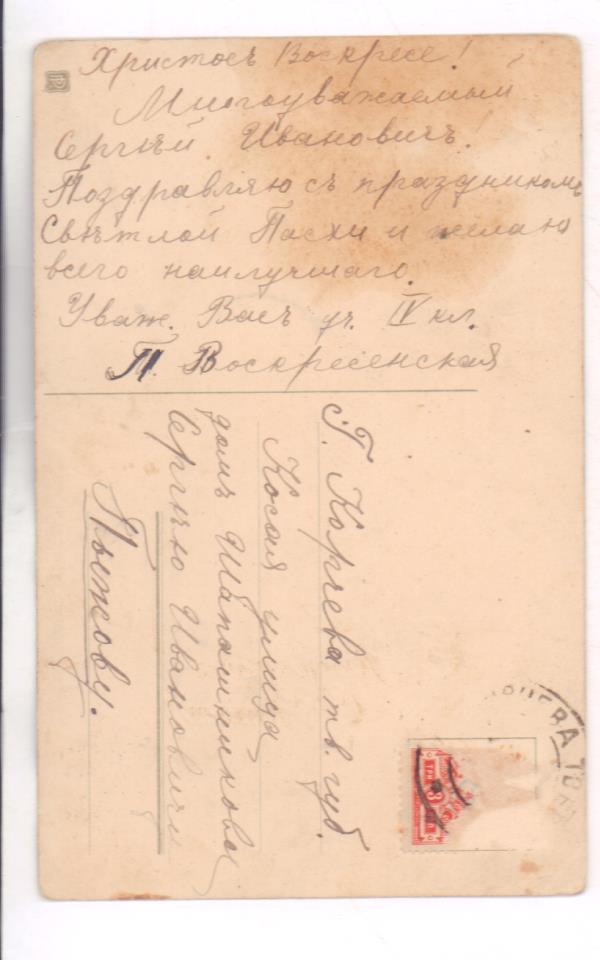 Христосъ Воскресе!
Многоуважаемый
Сергѣй Ивановичъ!
Поздравляю съ праздникомъ
Свѣтлой Пасхи и желаю
всего наилучшаго.
Уваж. Васъ уч. IV кл.
П. Воскресенская
Г. Корчева тв. губ.
Косая улица
домъ Шапошникова
Сергѣю Ивановичу
Пыжову.
ТРИ 3